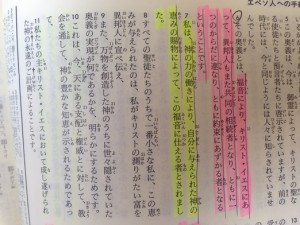 エペソ人への手
福音により、キリスト・イエスにあ
って、異邦人もまた共同の相続者となり、ともに一
つのからだに連なり、ともに約束にあずかる者となる
ということです。
7 私は、神の力の働きにより、自分に与えられた神の
恵みの賜物によって、この福音に仕える者とされまし
た。
8 すべての聖徒たちのうちで一番小さな私に、この恵
みが与えられたのは、私がキリストの測りがたい富を
異邦人に宣べ伝え、
9 また、万物を創造した神のうちに世々隠されていた
奥義の実現が何であるかを、明らかにするためです。
10 これは、今、天にある支配と権威とに対して、教
会を通して、神の豊かな知恵が示されるためであって、
11 私たちの主キリスト・イエスにおいて成し遂げられ
た神の永遠のご計画によることです。